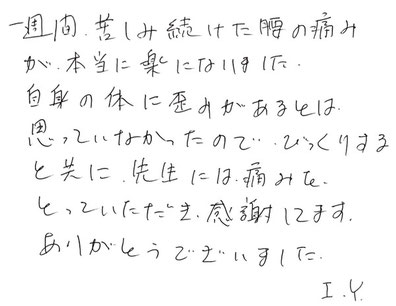 一週間、苦しみ続けた腰の痛み
が、本当に楽になりました。
自身の体に歪みがあるとは、
思っていなかったので、びっくりする
と共に、先生には、痛みを、
とっていただき、感謝してます。
ありがとうございました。
I.Y.